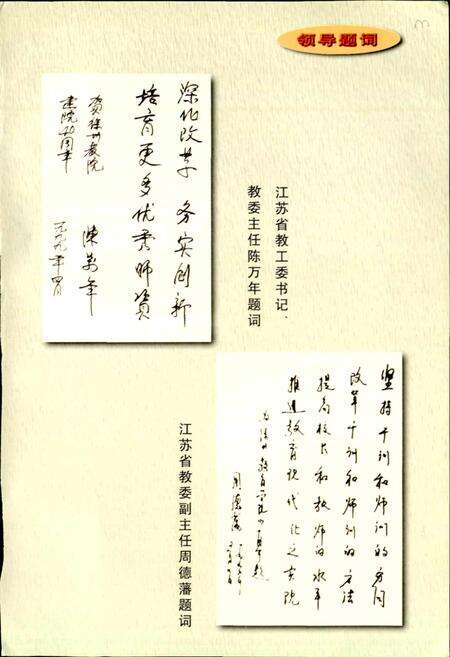 领导题词
深化改革 务实创新
培育更多优秀师资
贺徐州教院
建院40周年
陈万年
江苏省教工委书记、
教委主任陈万年题词
坚持干训和师训的方向
改革干训和师训的方法
提高校长和教师的水平
推进教育现代化之实现
周德藩
江苏省教委副主任周德藩题词